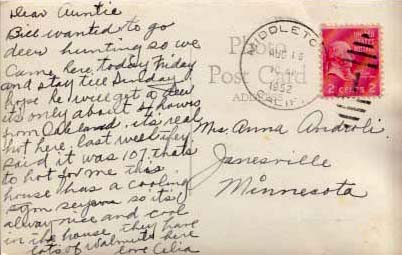 Dear Auntie
Bill wanted to go
deer hunting so we
came here today Friday
and stay till Sunday I
hope he will get a deer
its only about 4 hours
from Oakland. its real
hot here, last week they
said it was 107. thats
to hot for me this
house has a cooling
so its
alway nice and cool
in the house, they have
lots of walnuts here
love Celia
MIDDLETO
AUG 15
1952
CALIF.
UNITED STATES POSTAGE
2 CENTS 2
Photo
Post Card
Mrs. Anna Androli
Janesville
Minnesota